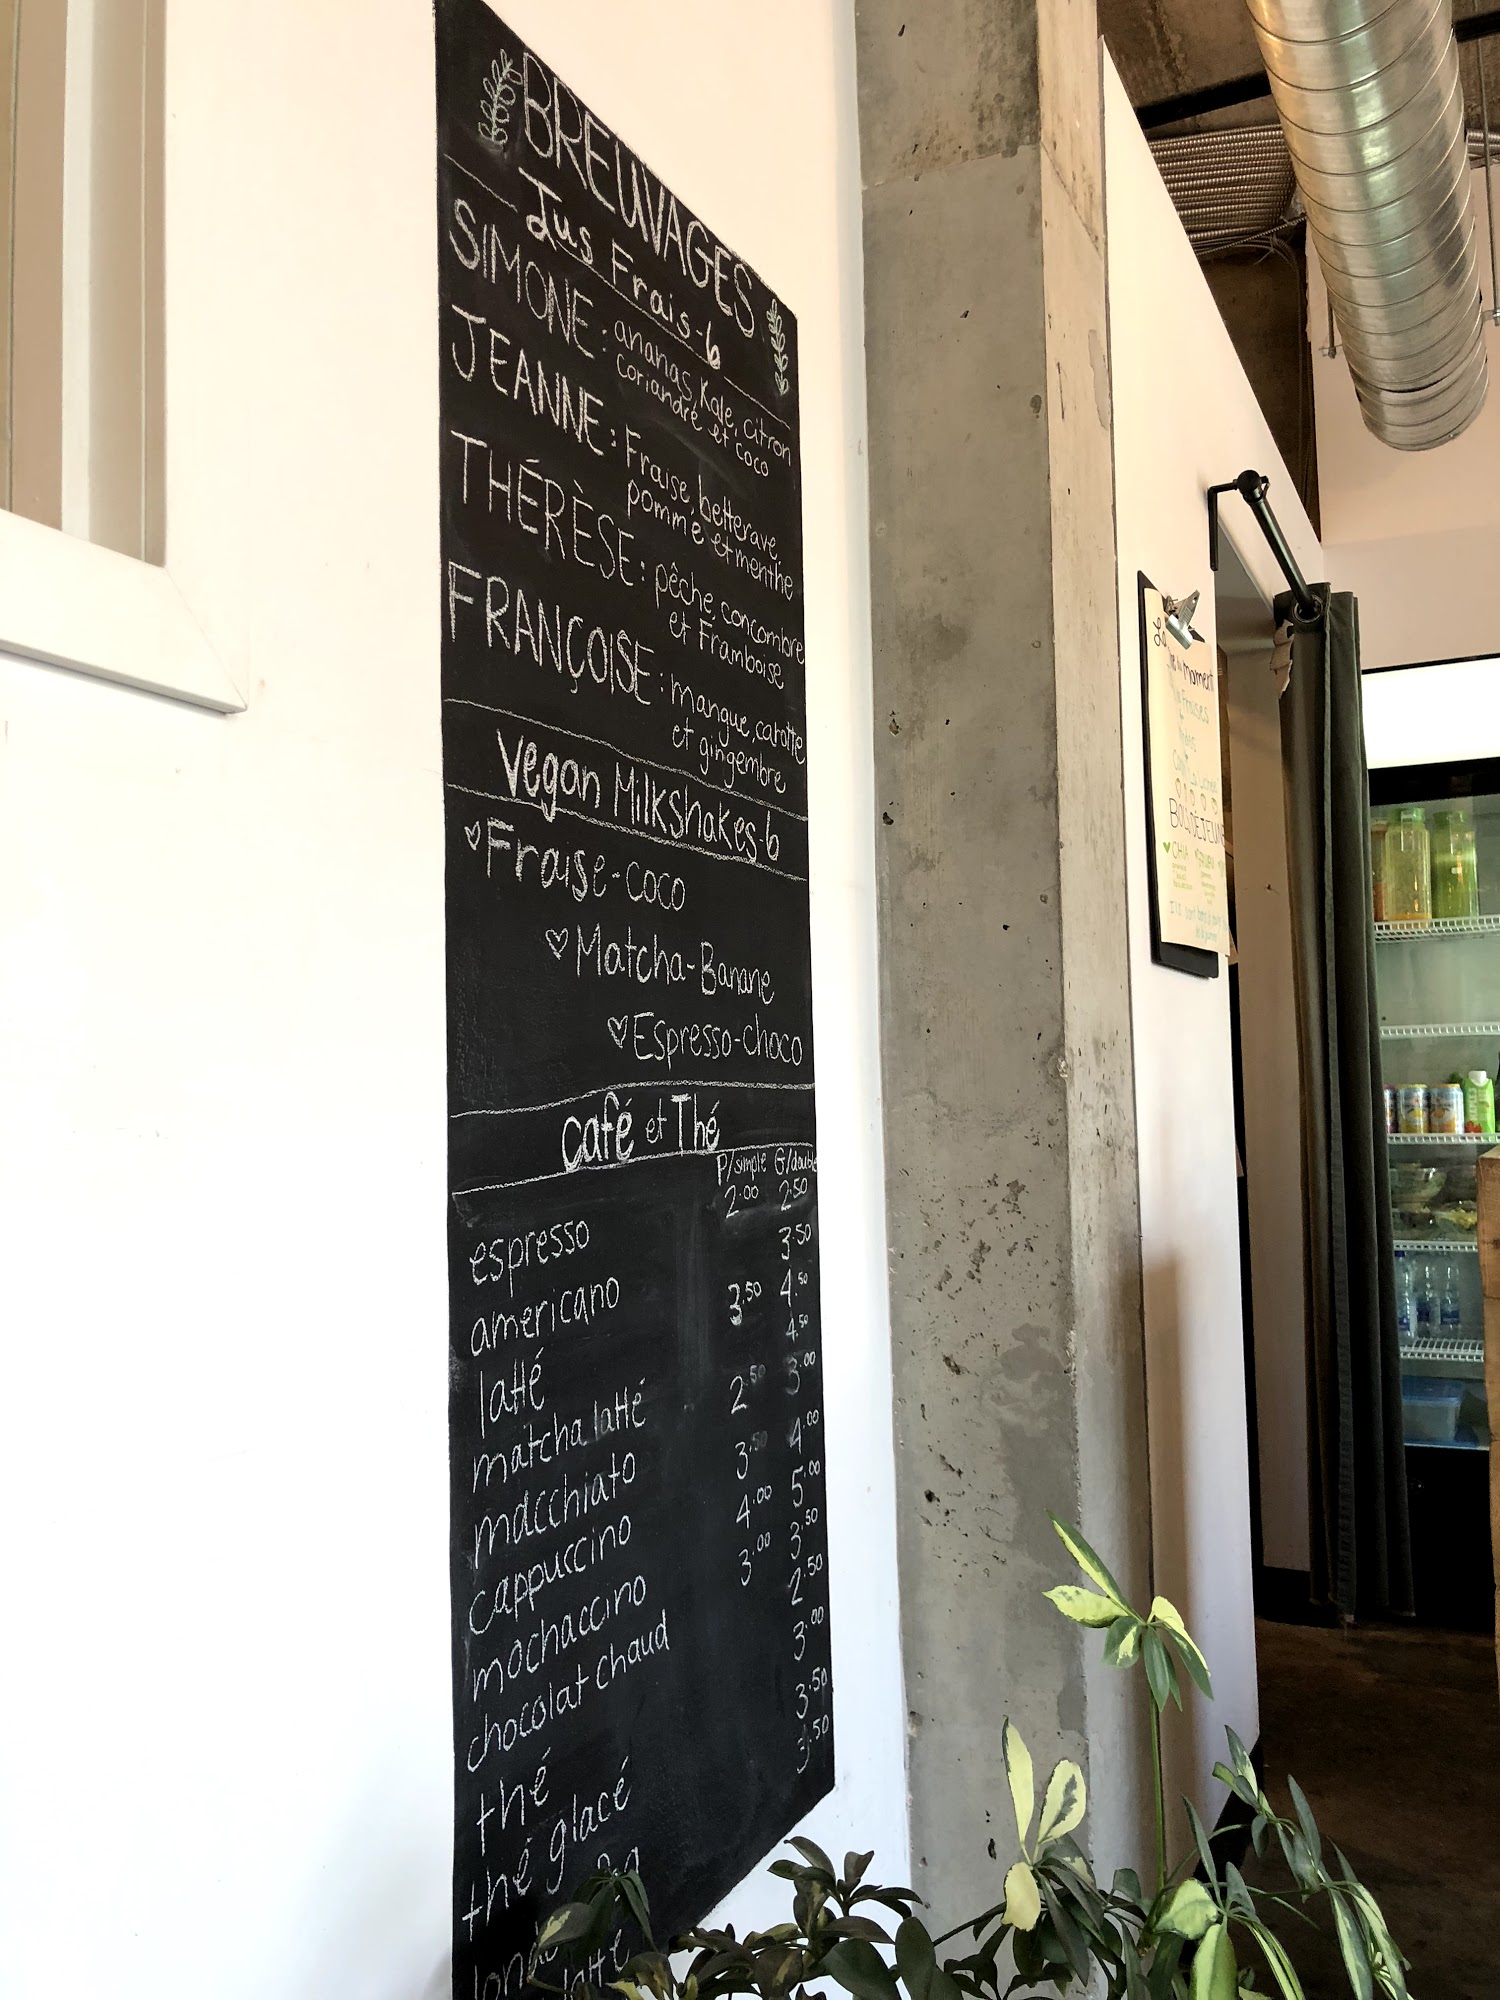 BREUVAGES
Jus Frais-6
SIMONE: ananas, Kale, citron
coriandre et coco
JEANNE: Fraise, betterave,
pomme et menthe
THÉRÈSE: pêche, concombre
et Framboise
FRANÇOISE: mangue, carotte
et gingembre
Vegan Milkshakes-6
Fraise-coco
Matcha-Banane
Espresso-choco
café et Thé
P/simple G/double
espresso 2.00 2.50
americano 3.50
latté 3.50 4.50
matcha latté 4.50
macchiato 2.50 3.00
cappuccino 3.50 4.00
mochaccino 4.00 5.00
chocolat chaud 3.00 3.50
thé 2.50
thé glacé 3.00
3.50
latte 3.50
moment
Fraises
BOL DÉJEUNE
CHIA